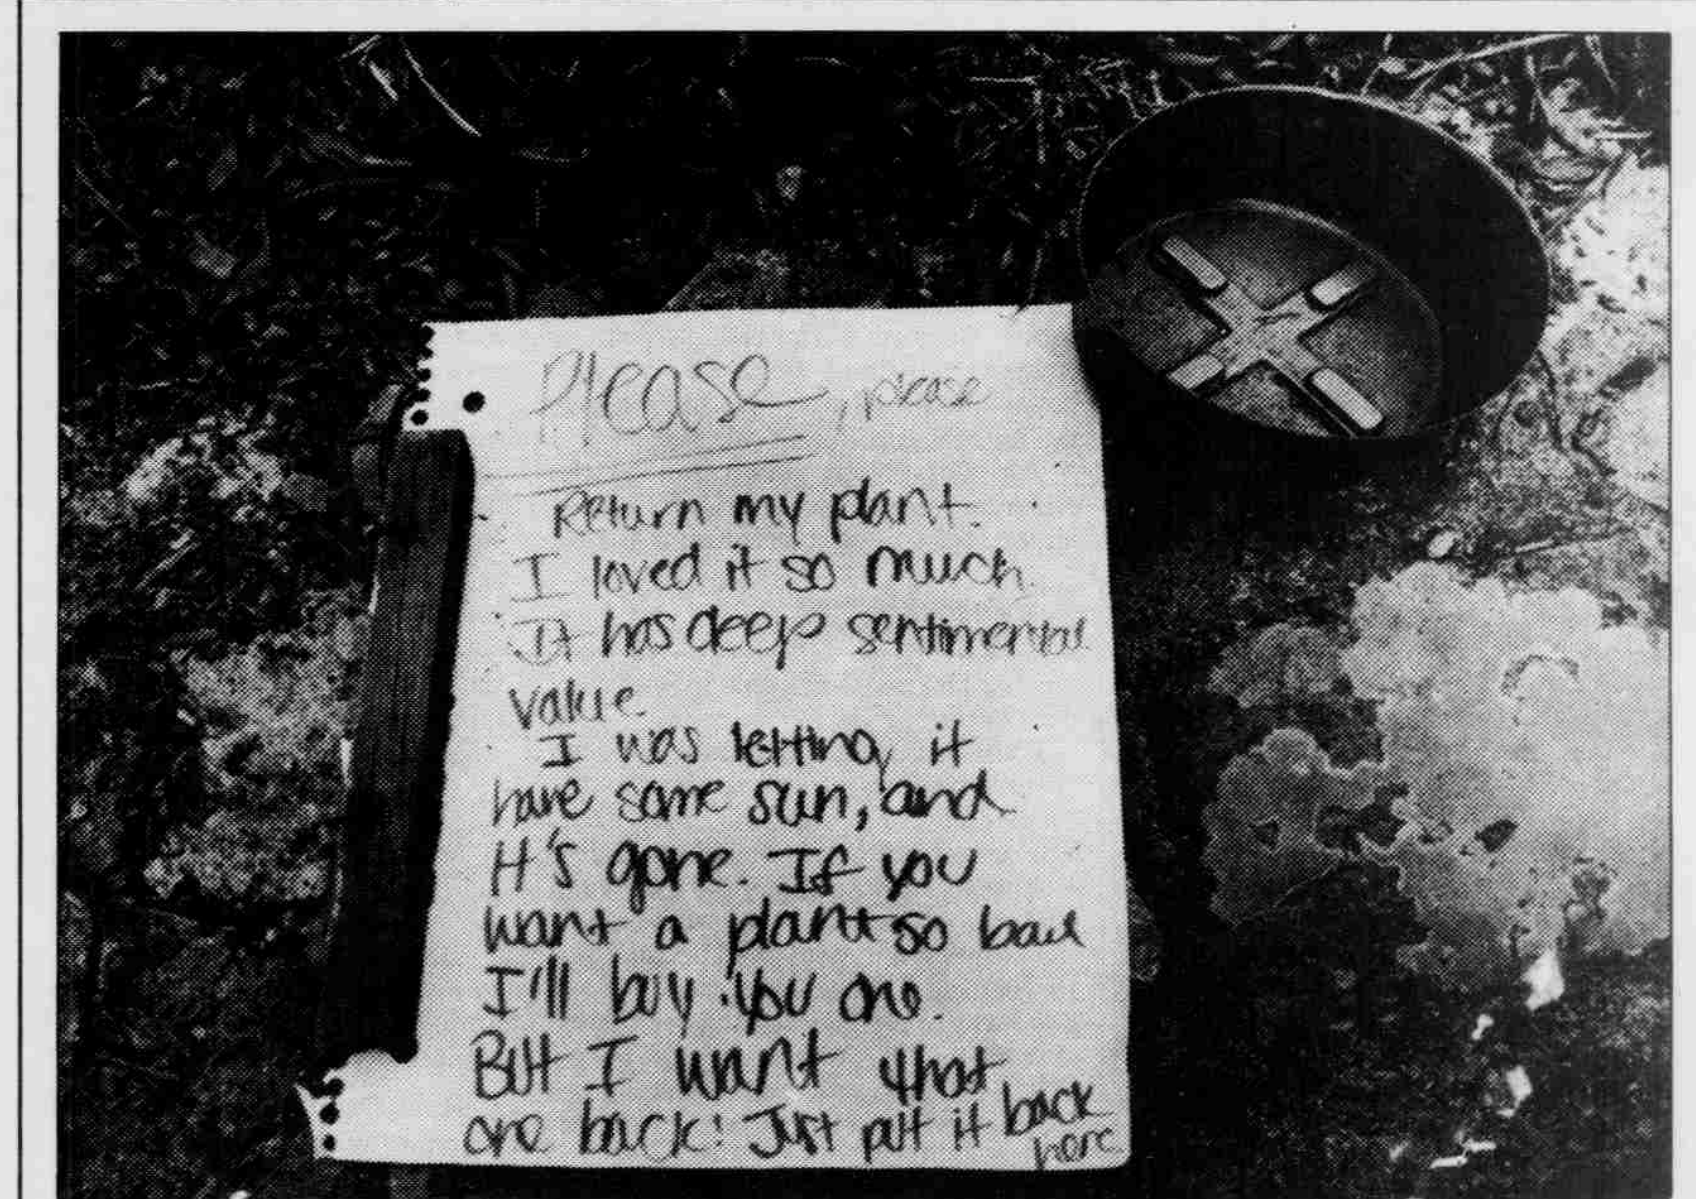 Please, please
Return my plant.
I loved it so much.
It has deep sentimental
value.
I was letting it
have some sun, and
it's gone. If you
want a plant so bad
I'll buy you one.
But I want that
one back! Just put it back
here